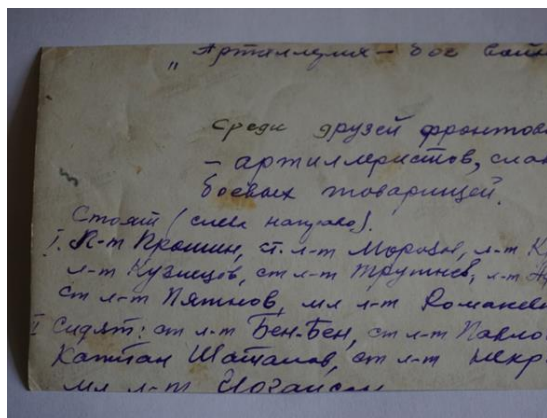 „Артиллерия – бог вой
среди друзей фронтов
– артиллеристов, слав
боевых товарищей.
Стоят (слева направо).
I. Л-т Прошин, ст. л-т Морозов, л-т К
л-т Кузнецов, ст л-т Трутнев, л-т
ст л-т Пятнов, мл л-т Романов
II Сидят: ст л-т Бен-Бен, ст л-т Павло
Капитан Шаталов, ст л-т Некр
мл л-т Иогансен